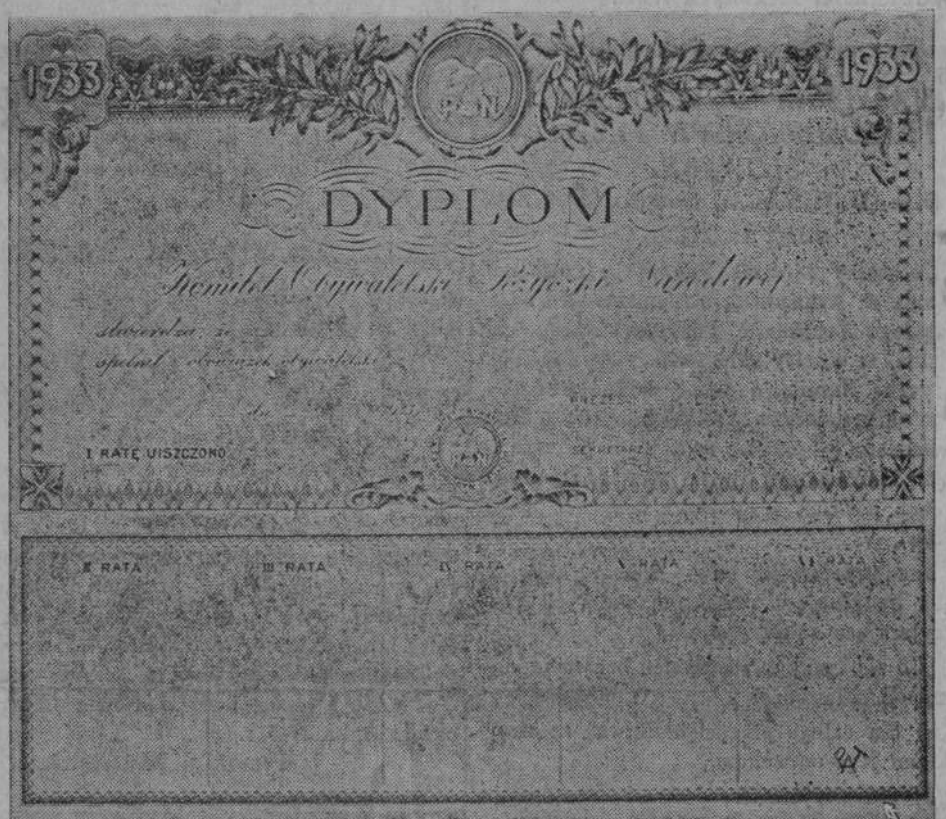 1933 1933
DYPLOM
Komitet Obywatelski Pożyczki Narodowej
stwierdza, że
spełnił obowiązek obywatelski
dn.
PREZES
I RATĘ UISZCZONO
SEKRETARZ
II RATA III RATA IV RATA V RATA VI RATA
PAT